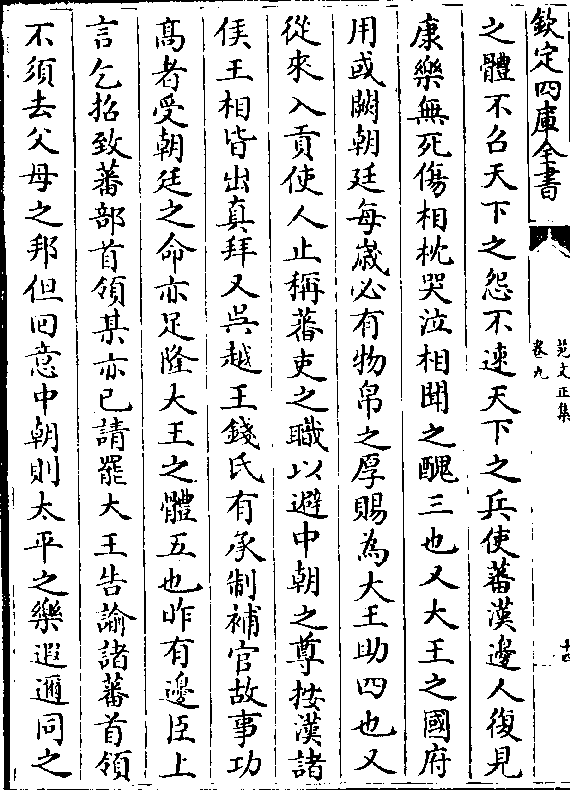 欽定四庫全書
范文正集
卷九
十四
之體不召天下之怨不速天下之兵使蕃漢邊人復見
康樂無死傷相枕哭泣相聞之醜三也又大王之國府
用或闕朝廷每嵗必有物帛之厚賜為大王助四也又
從來入貢使人止稱蕃吏之職以避中朝之尊按漢諸
侯王相皆出真拜又呉越王錢氏有承制補官故事功
髙者受朝廷之命亦足隆大王之體五也昨有邊臣上
言乞招致蕃部首領某亦已請罷大王告諭諸蕃首領
不須去父母之邦但回意中朝則太平之樂遐邇同之